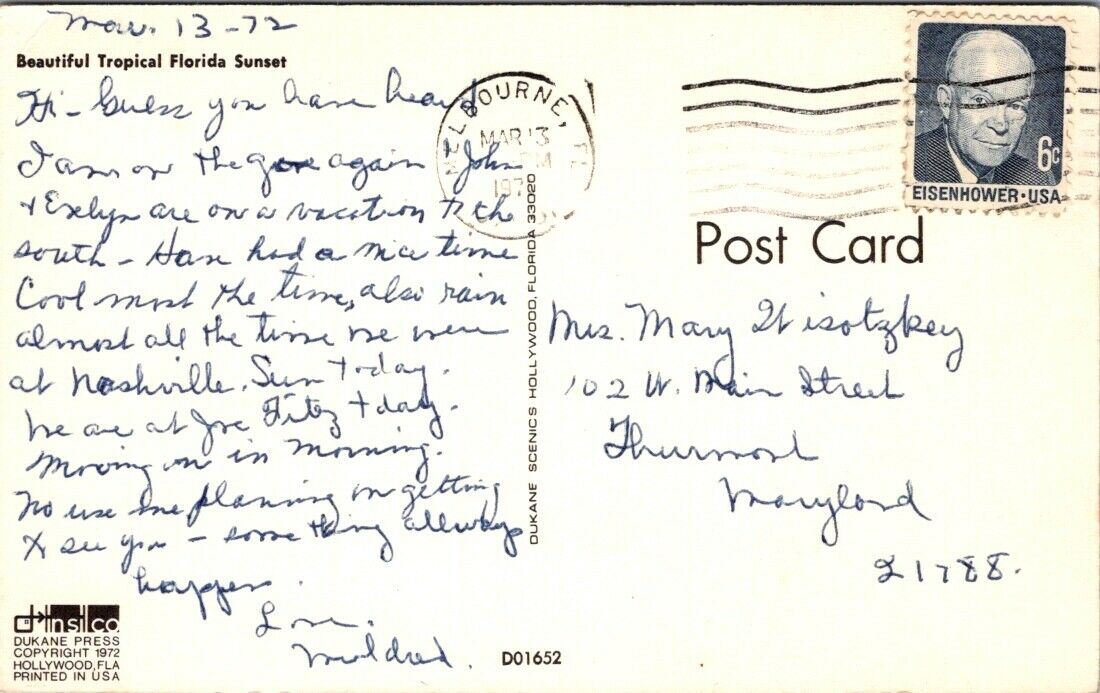 Mar. 13-72
Beautiful Tropical Florida Sunset
Hi - Guess you have heard
I am on the goe again John
+ Evelyn are on a vacation to the
south - Have had a nice time
Cool most the time, also rain
almost all the time we were
at Nashville. Sun today.
We are at Joe Fitez today.
Moving on in morning.
No use me planning on getting
to see you - some thing allways
happen.
Love.
Mildred.
dinsilco
DUKANE PRESS
COPYRIGHT 1972
HOLLYWOOD, FLA
PRINTED IN USA
D01652
DUKANE SCENICS HOLLYWOOD, FLORIDA 33020
MELBOURNE, FL
MAR 13
PM
6c
EISENHOWER·USA
Post Card
Mrs. Mary Wisotzkey
102 W. Main Street
Thurmont
Maryland
21788.